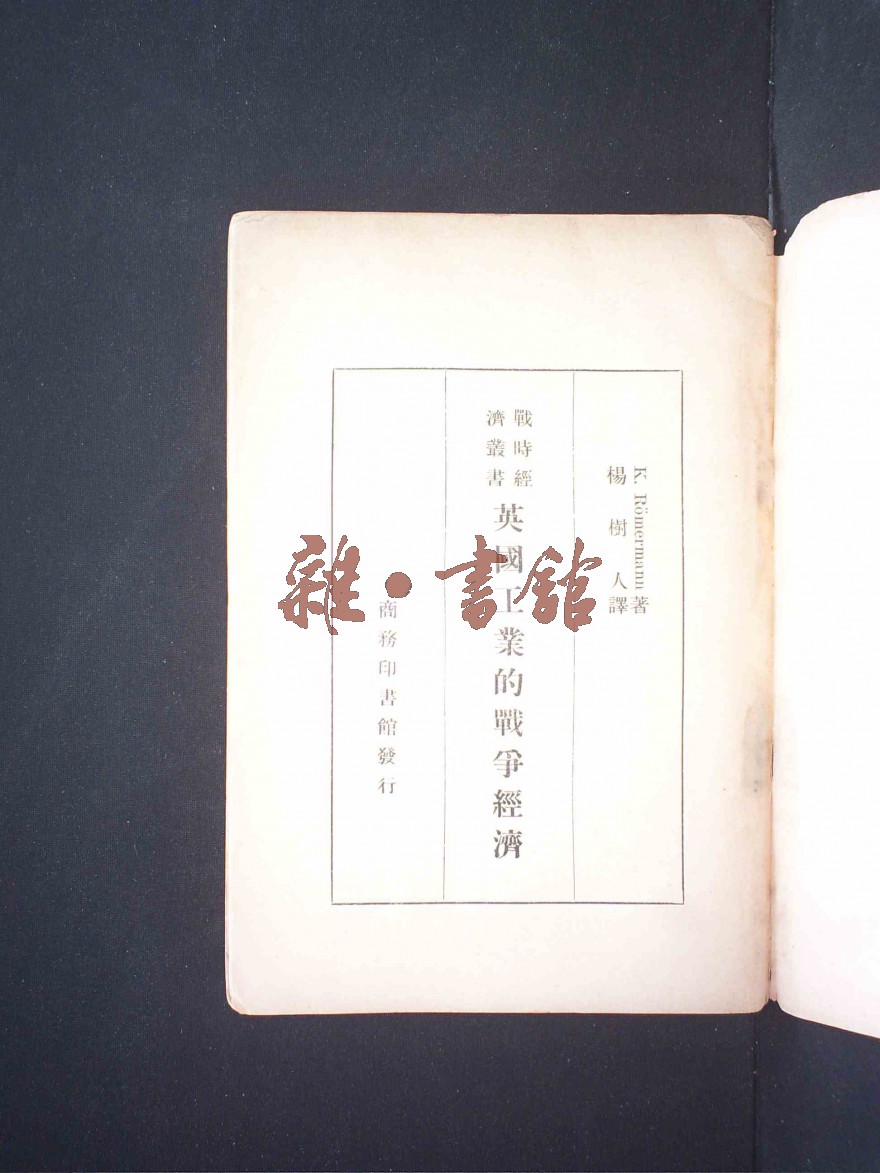 K. Römermann 著
楊樹人譯
戰時經
濟叢書
英國工業的戰爭經濟
商務印書館發行
雜·書館